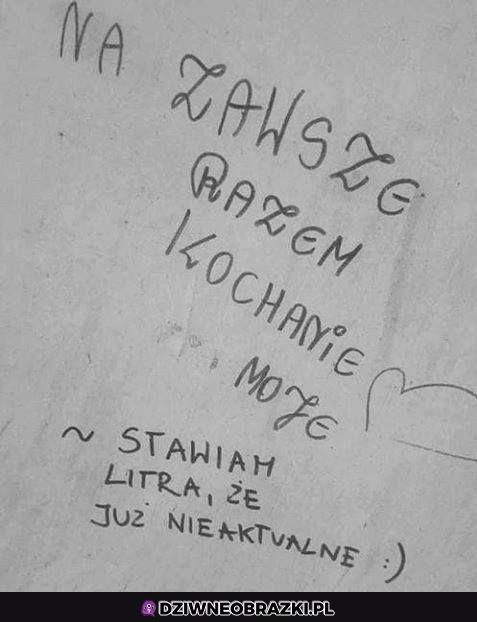 NA ZAWSZE
RAZEM
KOCHANIE
MOJE
~ STAWIAM
LITRA, ŻE
JUŻ NIEAKTUALNE :)
DZIWNEOBRAZKI.PL